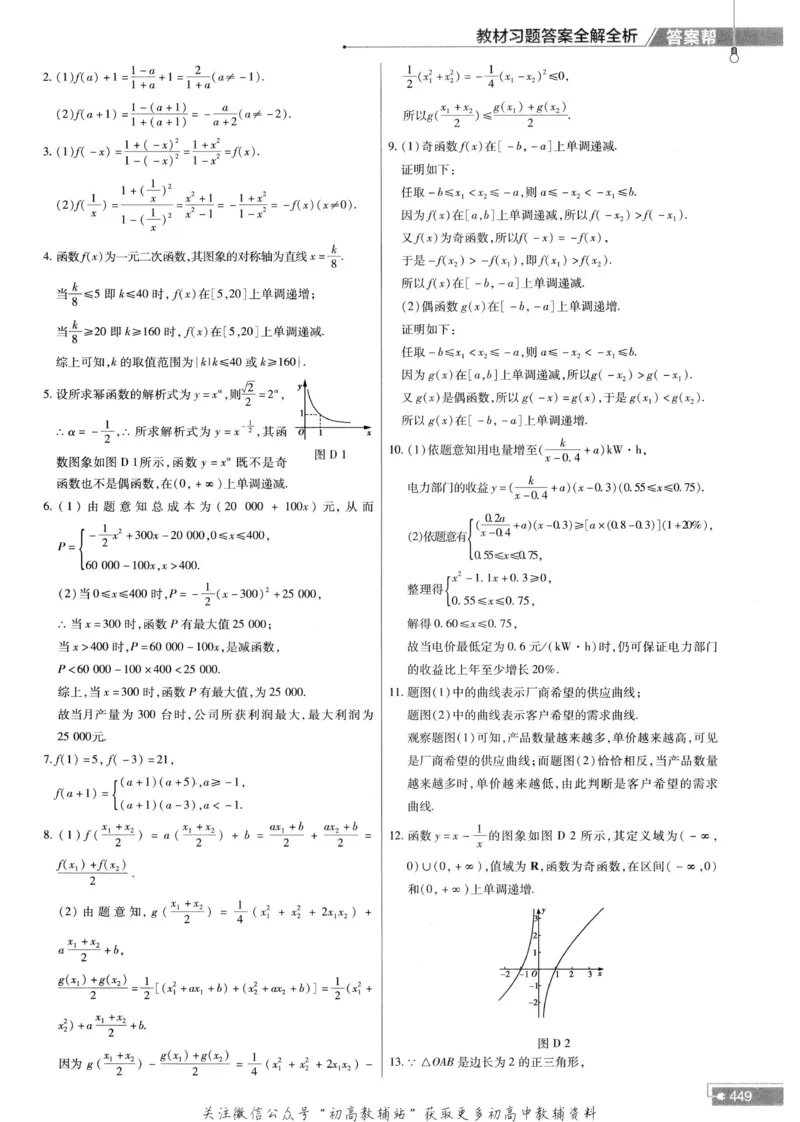 教材习题答案全解全析 答案帮
2. (1)f(a)+1=\frac{1-a}{1+a}+1=\frac{2}{1+a}(a≠-1).
(2)f(a+1)=\frac{1-(a+1)}{1+(a+1)}=-\frac{a}{a+2}(a≠-2).
3. (1)f(-x)=\frac{1+(-x)^2}{1-(-x)^2}=\frac{1+x^2}{1-x^2}=f(x).
(2)f(\frac{1}{x})=\frac{1+(\frac{1}{x})^2}{1-(\frac{1}{x})^2}=\frac{x^2+1}{x^2-1}=-\frac{1+x^2}{1-x^2}=-f(x)(x≠0).
4. 函数f(x)为一元二次函数,其图象的对称轴为直线x=\frac{k}{8}.
当\frac{k}{8}≤5即k≤40时,f(x)在[5,20]上单调递增;
当\frac{k}{8}≥20即k≥160时,f(x)在[5,20]上单调递减.
综上可知,k的取值范围为{k|k≤40或k≥160}.
5. 设所求幂函数的解析式为y=x^α,则\frac{\sqrt{2}}{2}=2^α,
∴α=-\frac{1}{2},∴所求解析式为y=x^{-\frac{1}{2}},其函
数图象如图D 1所示,函数y=x^α既不是奇
函数也不是偶函数,在(0,+∞)上单调递减.
y
1
O 1 x
图D 1
6. (1)由题意知总成本为(20 000+100x)元,从而
P={-\frac{1}{2}x^2+300x-20 000,0≤x≤400,
60 000-100x,x>400.
(2)当0≤x≤400时,P=-\frac{1}{2}(x-300)^2+25 000,
∴当x=300时,函数P有最大值25 000;
当x>400时,P=60 000-100x,是减函数,
P<60 000-100×400<25 000.
综上,当x=300时,函数P有最大值,为25 000.
故当月产量为300台时,公司所获利润最大,最大利润为
25 000元.
7. f(1)=5,f(-3)=21,
f(a+1)={(a+1)(a+5),a≥-1,
(a+1)(a-3),a<-1.
8. (1)f(\frac{x_1+x_2}{2})=a(\frac{x_1+x_2}{2})+b=\frac{ax_1+b}{2}+\frac{ax_2+b}{2}=
\frac{f(x_1)+f(x_2)}{2}.
(2)由题意知,g(\frac{x_1+x_2}{2})=\frac{1}{4}(x_1^2+x_2^2+2x_1x_2)+
a\frac{x_1+x_2}{2}+b,
\frac{g(x_1)+g(x_2)}{2}=\frac{1}{2}[(x_1^2+ax_1+b)+(x_2^2+ax_2+b)]=\frac{1}{2}(x_1^2+
x_2^2)+a\frac{x_1+x_2}{2}+b.
因为g(\frac{x_1+x_2}{2})-\frac{g(x_1)+g(x_2)}{2}=\frac{1}{4}(x_1^2+x_2^2+2x_1x_2)-
\frac{1}{2}(x_1^2+x_2^2)=-\frac{1}{4}(x_1-x_2)^2≤0,
所以g(\frac{x_1+x_2}{2})≤\frac{g(x_1)+g(x_2)}{2}.
9. (1)奇函数f(x)在[-b,-a]上单调递减.
证明如下:
任取-b≤x_1<x_2≤-a,则a≤-x_2<-x_1≤b.
因为f(x)在[a,b]上单调递减,所以f(-x_2)>f(-x_1).
又f(x)为奇函数,所以f(-x)=-f(x),
于是-f(x_2)>-f(x_1),即f(x_1)>f(x_2).
所以f(x)在[-b,-a]上单调递减.
(2)偶函数g(x)在[-b,-a]上单调递增.
证明如下:
任取-b≤x_1<x_2≤-a,则a≤-x_2<-x_1≤b.
因为g(x)在[a,b]上单调递减,所以g(-x_2)>g(-x_1).
又g(x)是偶函数,所以g(-x)=g(x),于是g(x_1)<g(x_2).
所以g(x)在[-b,-a]上单调递增.
10. (1)依题意知用电量增至(\frac{k}{x-0.4}+a)kW·h,
电力部门的收益y=(\frac{k}{x-0.4}+a)(x-0.3)(0.55≤x≤0.75).
(2)依题意有{(\frac{0.2a}{x-0.4}+a)(x-0.3)≥[a×(0.8-0.3)](1+20%),
0.55≤x≤0.75,
整理得{x^2-1.1x+0.3≥0,
0.55≤x≤0.75,
解得0.60≤x≤0.75,
故当电价最低定为0.6元/(kW·h)时,仍可保证电力部门
的收益比上年至少增长20%.
11. 题图(1)中的曲线表示厂商希望的供应曲线;
题图(2)中的曲线表示客户希望的需求曲线.
观察题图(1)可知,产品数量越来越多,单价越来越高,可见
是厂商希望的供应曲线;而题图(2)恰恰相反,当产品数量
越来越多时,单价越来越低,由此判断是客户希望的需求
曲线.
12. 函数y=x-\frac{1}{x}的图象如图D 2所示,其定义域为(-∞,
0)∪(0,+∞),值域为R,函数为奇函数,在区间(-∞,0)
和(0,+∞)上单调递增.
y
3
2
1
-2 -1 O 1 2 3 x
-1
-2
图D 2
13. ∵△OAB是边长为2的正三角形,
449
关注微信公众号“初高教辅站”获取更多初高中教辅资料